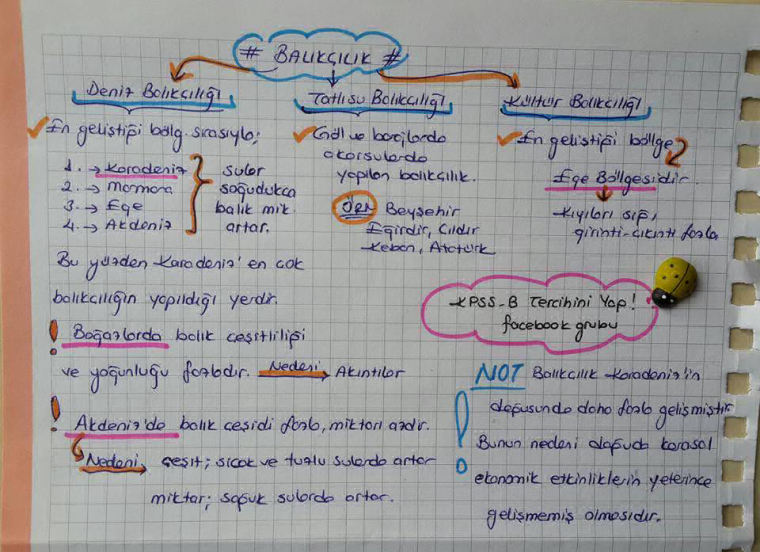 # BALIKÇILIK #
Deniz Balıkçılığı
En geliştiği bölg. sırasıyla;
1. → Karadeniz
2. → Marmara
3. → Ege
4. → Akdeniz
sular
soğudukça
balık mik.
artar.
Bu yüzden Karadeniz' en çok
balıkçılığın yapıldığı yerdir.
! Boğazlarda balık çeşitliliği
ve yoğunluğu fazladır. Nedeni → Akıntılar
! Akdeniz'de balık çeşidi fazla, miktarı azdır.
Nedeni → çeşit; sıcak ve tuzlu sularda artar
miktar; soğuk sularda artar.
Tatlısu Balıkçılığı
Göl ve barajlarda
akarsularda
yapılan balıkçılık.
ÖRN Beyşehir
Eğirdir, Çıldır
Keban, Atatürk
Kültür Balıkçılığı
En geliştiği bölge
Ege Bölgesidir.
Kıyıları sığ,
girinti-çıkıntı fazla
KPSS-B Tercihini Yap!
facebook grubu
NOT Balıkçılık Karadeniz'in
doğusunda daha fazla gelişmiştir
! Bunun nedeni doğuda karasal
ekonomik etkinliklerin yeterince
gelişmemiş olmasıdır.